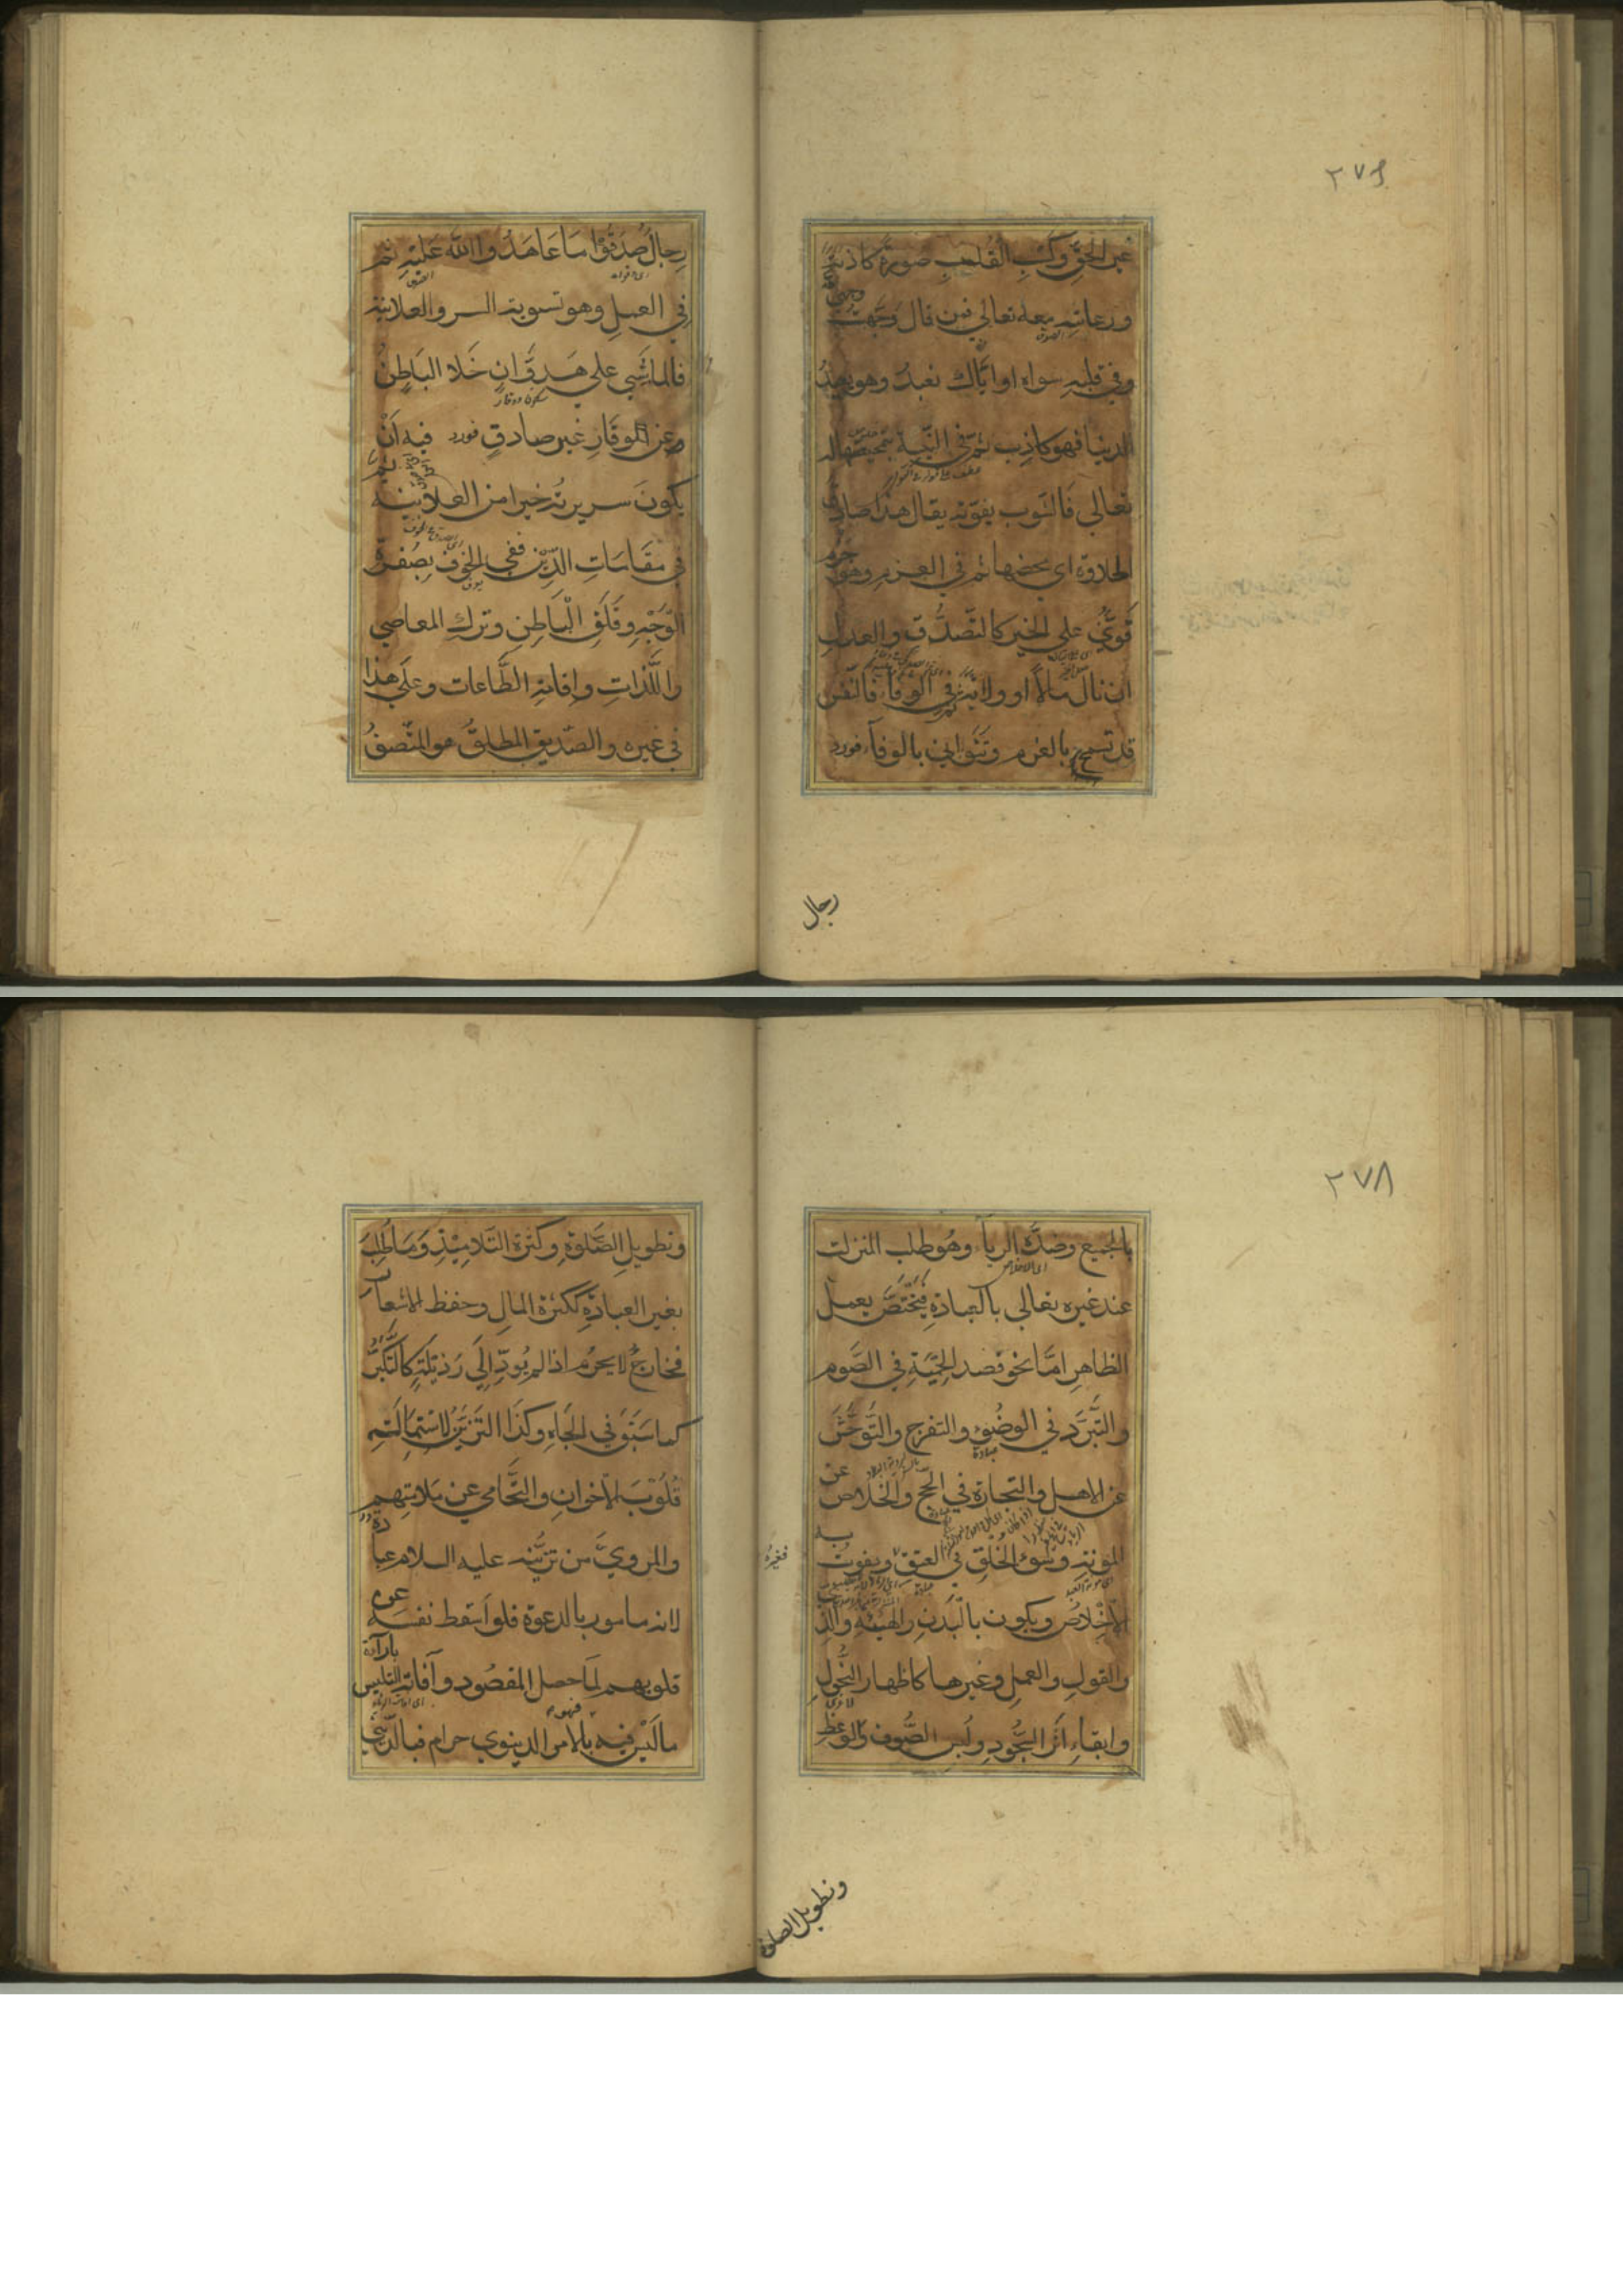 ٢٧٦
غير الحق وكسب القلب صورة كاذبة
ورعايته معه تعالى فمن قال وجهت وجهي
وفي قلبه سواه او اياك نعبد وهو يعبد
الدنيا فهو كاذب ثم في النية بتمحيضها له
تعالى فالشوب يفوته يقال هذا صادق
الحلاوة اي محضها ثم في العزم وهو جزم
قوي على الخير كالتصدق والعدل
ان نال مالا او ولاية ثم في الوفاء فالنفس
قد تسمح بالعزم وتتوانى بالوفاء فورد
رجال
رجال صدقوا ما عاهدوا الله عليه ثم
في العمل وهو تسوية السر والعلانية
فالماشي على هدو ان خلا الباطن
عن الوقار غير صادق فورد فيه ان
يكون سريرته خيرا من العلانية ثم
في مقامات الدين ففي الخوف بصفرة
الوجه وقلق الباطن وترك المعاصي
واللذات وإقامة الطاعات وعلى هذا
في غيره والصديق المطلق هو المتصف
٢٧٨
بالجميع وضده الرياء وهو طلب المنزلة
عند غيره تعالى بالعبادة فيختص بعمل
الظاهر اما نحو قصد الحمية في الصوم
والتبرد في الوضوء والتفرج والتوحش
عن الاهل والتجارة في الحج والخلاص عن
المونة وسوء الخلق في العتق ويفوت به
الاخلاص ويكون بالبدن والهيئة والزي
والقول والعمل وغيرها كاظهار النحول
وابقاء اثر السجود ولبس الصوف والوعظ
وتطويل الصلوة
وتطويل الصلوة وكثرة التلاميذ وما طلب
بغير العبادة ككثرة المال وحفظ الاشعار
فخارج لا يحرم اذا لم يؤد الى رذيلة كالتكبر
كما سبق في الجاه وكذا التزين لاستمالة
قلوب الاخوان والتحامي عن ملامتهم
والمروي من تزينه عليه السلام عبادة
لانه مامور بالدعوة فلو اسقط نفسه عن
قلوبهم لما حصل المقصود وآفاته التلبيس بارآة
ما ليس فيه فهو بالامر الدنيوي حرام فبالديني